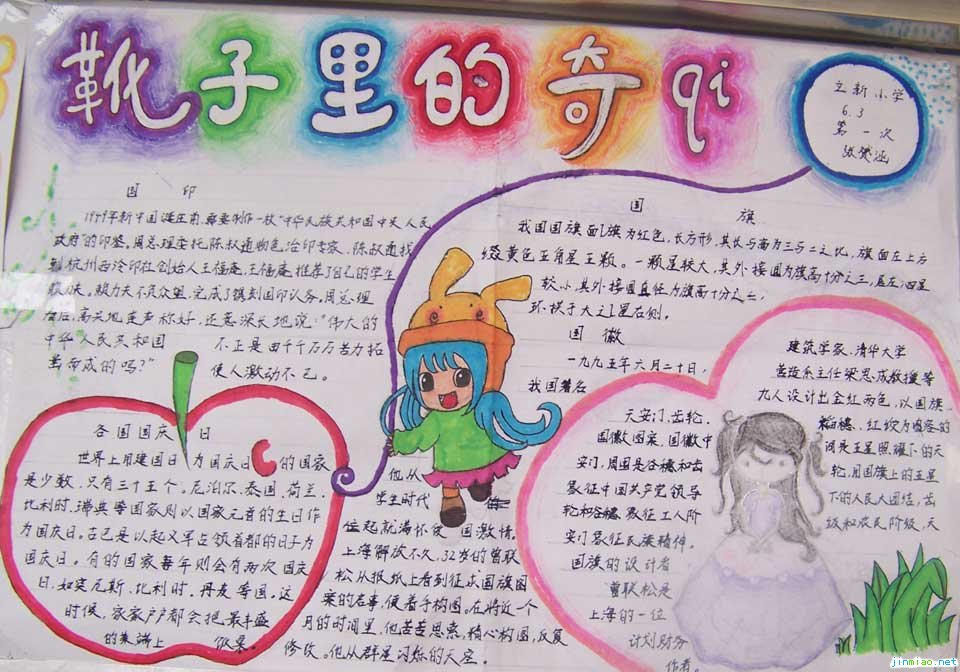 靴子里的奇qi
立新小学
6.3
第一次
国印
1949年新中国诞生前,需要制作一枚“中华民族共和国中央人民
政府”的印鉴,周总理委托陈叔通物色治印专家,陈叔通找
到杭州西泠印社创始人王福庵,王福庵推荐了自己的学生
后后,高兴地连声称好,还意深长地说:“伟大的
中华人民共和国
不正是由千千万万苦力拓
凿而成的吗?”
使人激动不已。
国旗
我国国旗面旗为红色,长方形,其长与高为三与二之比,旗面左上方
缀黄色五角星五颗。一颗星较大,其外接圆为旗高十分之三,居左;四星
较小,其外接圆直径为旗高十分之一,
环拱于大之星右侧。
国徽
一九九五年六月二十日,
我国著名
建筑学家、清华大学
营造系主任梁思成教援等
九人设计出金红两色,以国旗、
天安门、齿轮、
稻穗、红绞为内容的
国徽图案。国徽中
词是五星照耀下的天
安门,周围是谷穗和齿
轮,用国旗上的五星
象征中国共产党领导
下的人民大团结,齿
轮和谷穗象征工人阶
级和农民阶级,天
安门象征民族精神。
国旗的设计者
曾联松是
上海的一位
计划财务
作者。
他从
学生时代
位起就满怀爱国激情。
上海解放不久,32岁的曾联
松从报纸上看到征求国旗图
案的启事,便着手构图。在将近一个
月的时间里,他苦苦思索,精心构图,反复
修改。他从群星闪烁的天空、
各国国庆日
世界上用建国日为国庆日的国家
是少数,只有三十五个。尼泊尔、泰国、荷兰、
比利时、瑞典等国家则以国家元首的生日作
为国庆日。古巴是以起义军占领首都的日子为
国庆日。有的国家每年则会有两次国庆
日,如突尼斯、比利时、丹麦等国。这
时候,家家户户都会把最丰盛
jinmiao.net